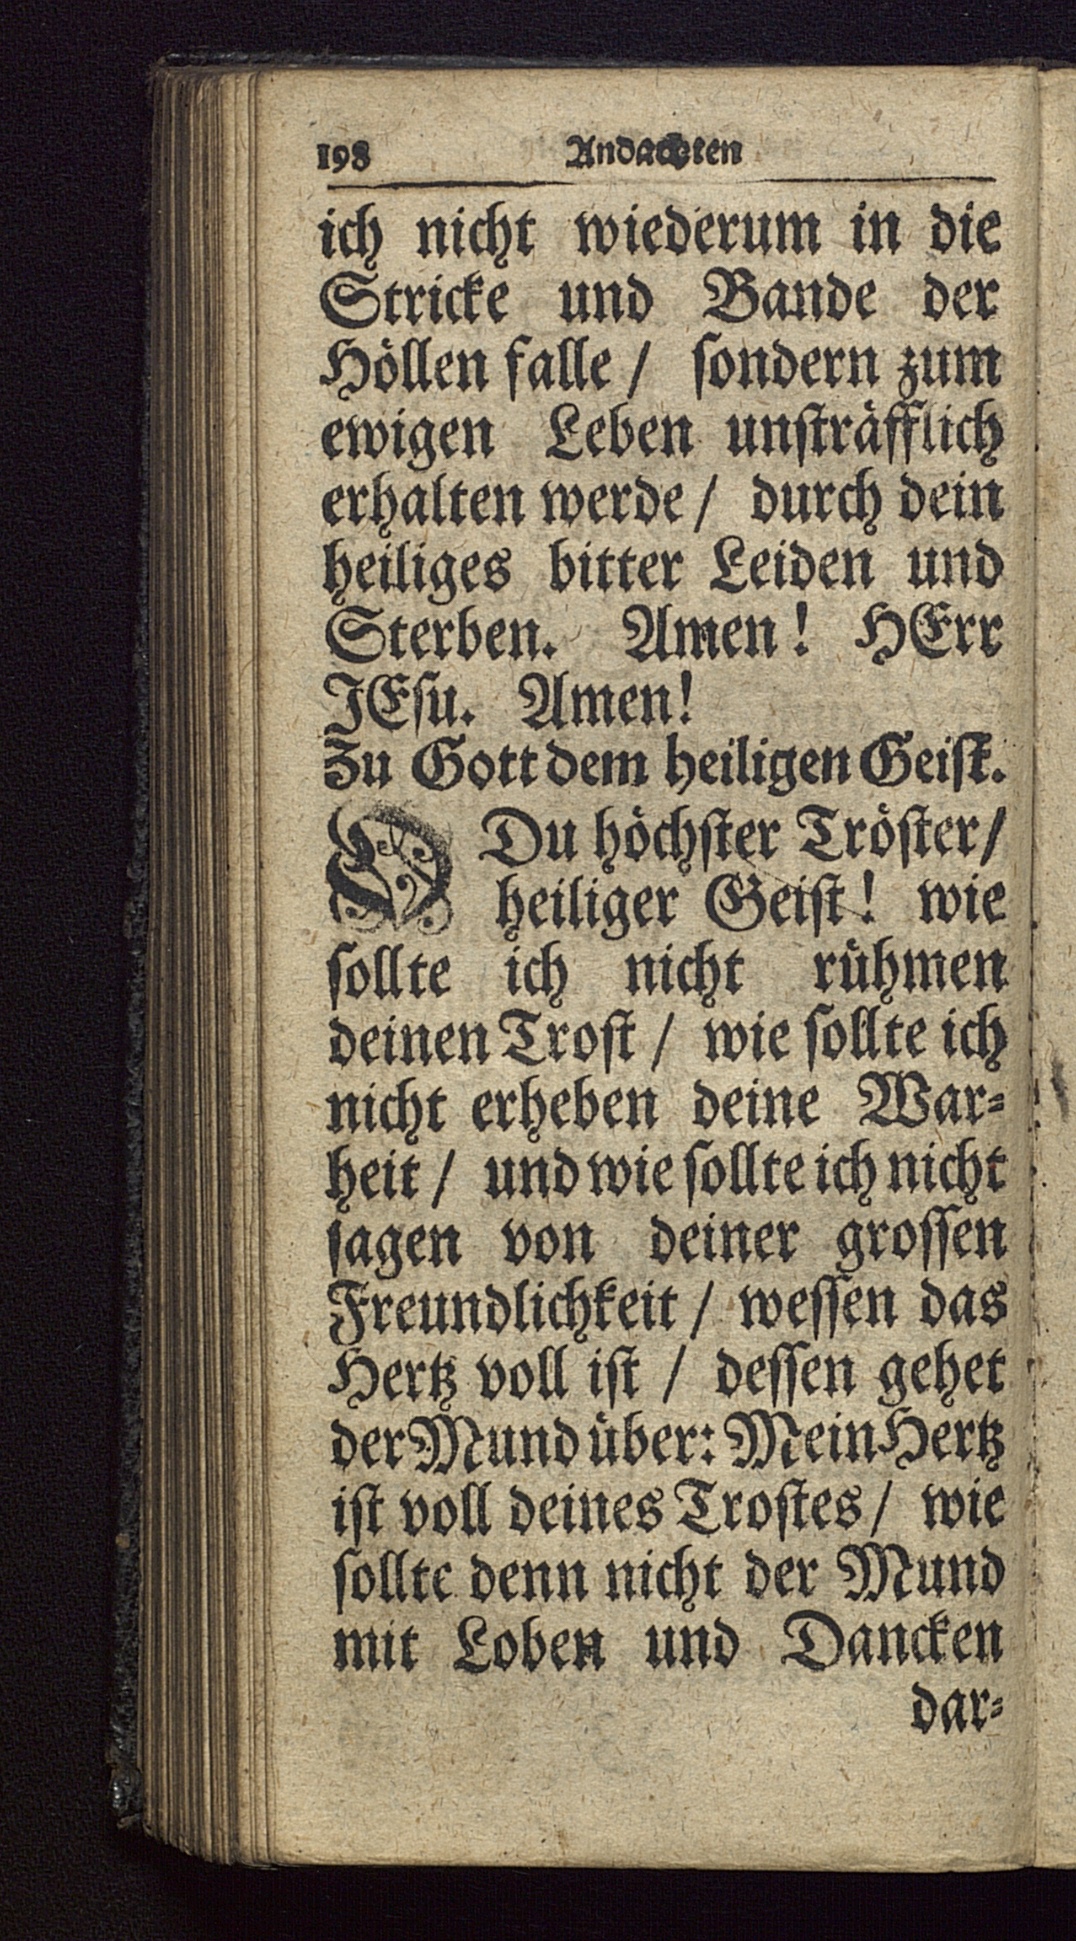 198 Andachten
ich nicht wiederum in die
Stricke und Bande der
Höllen falle / ſondern zum
ewigen Leben unſträfflich
erhalten werde / durch dein
heiliges bitter Leiden und
Sterben. Amen! HErr
JEſu. Amen!
Zu Gott dem heiligen Geiſt.
O Du höchſter Tröſter/
heiliger Geiſt! wie
ſollte ich nicht rühmen
deinen Troſt / wie ſollte ich
nicht erheben deine War⸗
heit / und wie ſollte ich nicht
ſagen von deiner groſſen
Freundlichkeit / weſſen das
Hertz voll iſt / deſſen gehet
der Mund über: Mein Hertz
iſt voll deines Troſtes / wie
ſollte denn nicht der Mund
mit Loben und Dancken
dar⸗